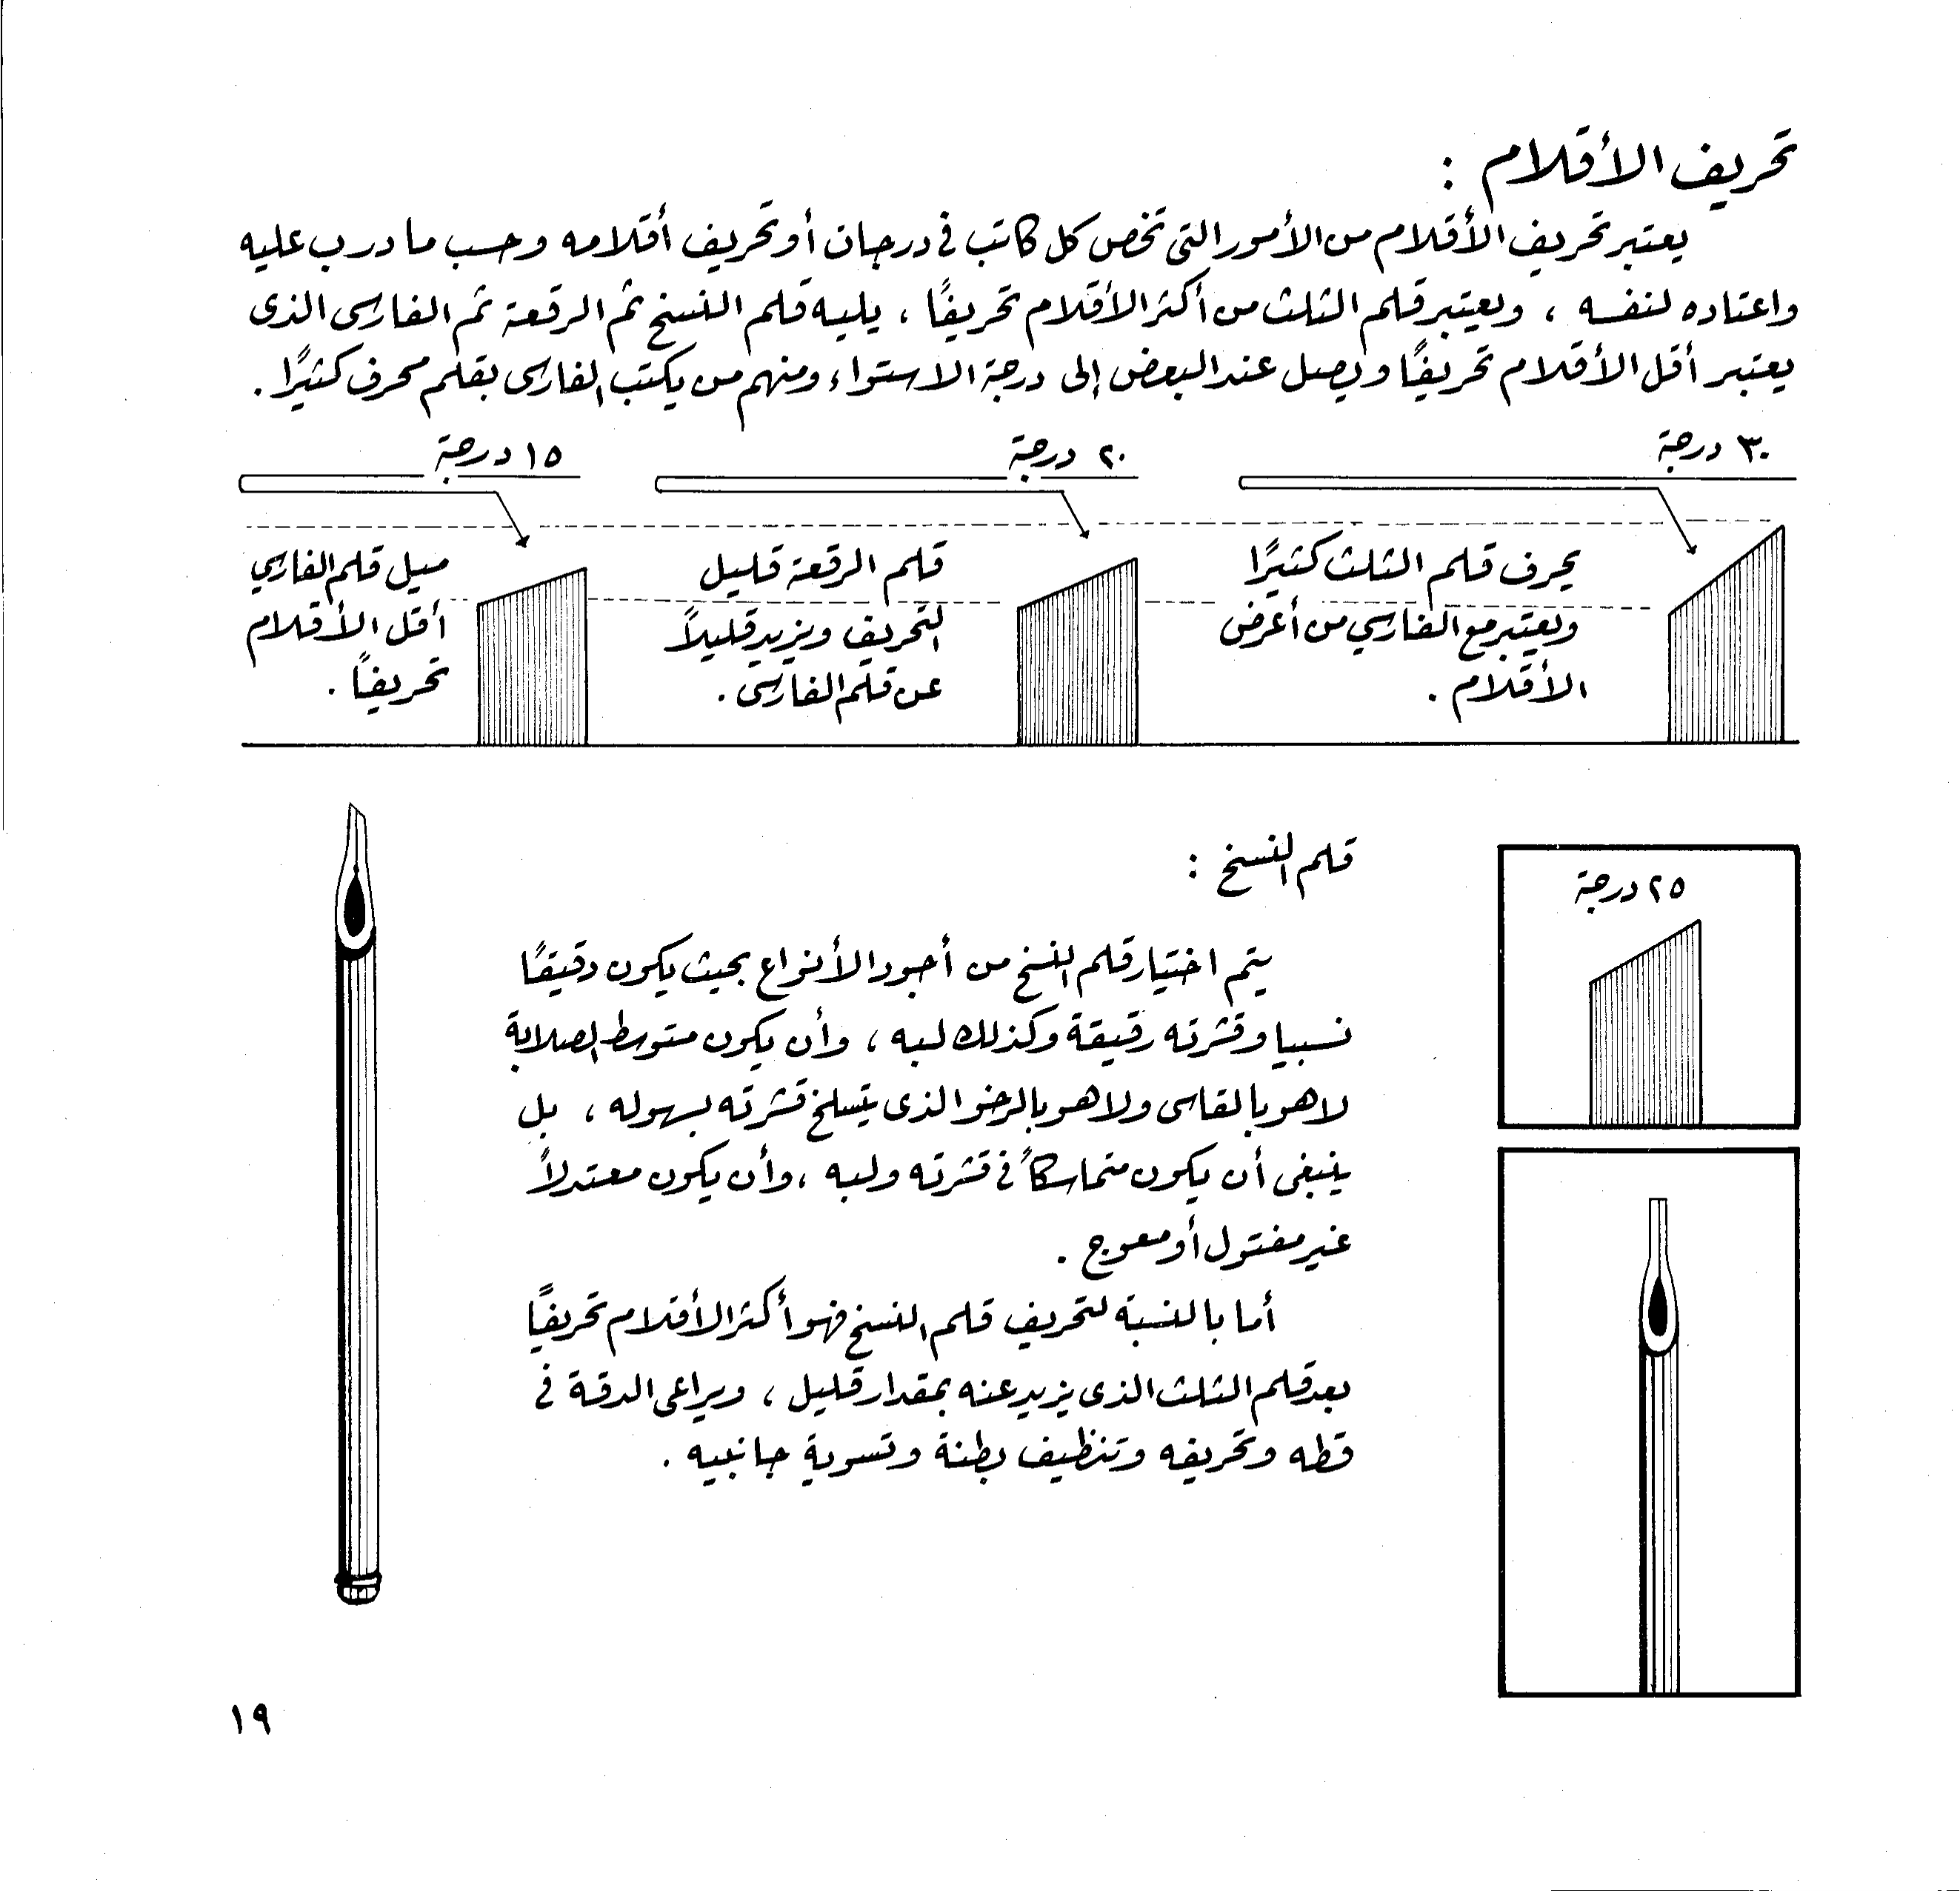 تحريف الأقلام :
يعتبر تحريف الأقلام من الأمور التى تخص كل كاتب فى درجات أو تحريف أقلامه وحسب ما درب عليه
واعتاده لنفسه ، ويعتبر قلم الثلث من أكثر الأقلام تحريفًا ، يليه قلم النسخ ثم الرقعة ثم الفارسى الذى
يعتبر أقل الأقلام تحريفًا ويصل عند البعض إلى درجة الاستواء ومنهم من يكتب الفارسى بقلم محرف كثيرًا .
٣٠ درجة
يحرف قلم الثلث كثيرًا
ويعتبر مع الفارسي من أعرض
الأقلام .
٢٠ درجة
قلم الرقعة قليل
التحريف ويزيد قليلاً
عن قلم الفارسى .
١٥ درجة
ميل قلم الفارسي
أقل الأقلام
تحريفًا .
٢٥ درجة
قلم النسخ :
يتم اختيار قلم النسخ من أجود الأنواع بحيث يكون دقيقًا
نسبيا وقشرته رقيقة وكذلك لبه ، وأن يكون متوسط الصلابة
لا هو بالقاسى ولا هو بالرخو الذى يتسلخ قشرته بسهوله ، بل
ينبغى أن يكون متماسكاً فى قشرته ولبه ، وأن يكون معتدلاً
غير مفتول أو معوج .
أما بالنسبة لتحريف قلم النسخ فهو أكثر الأقلام تحريفًا
بعد قلم الثلث الذى يزيد عنه بمقدار قليل ، ويراعى الدقة فى
قطه وتحريفه وتنظيف بطنة وتسوية جانبيه .
١٩